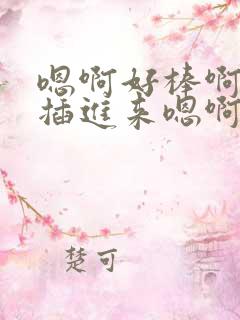 嗯啊好棒啊
插进来嗯啊
楚可